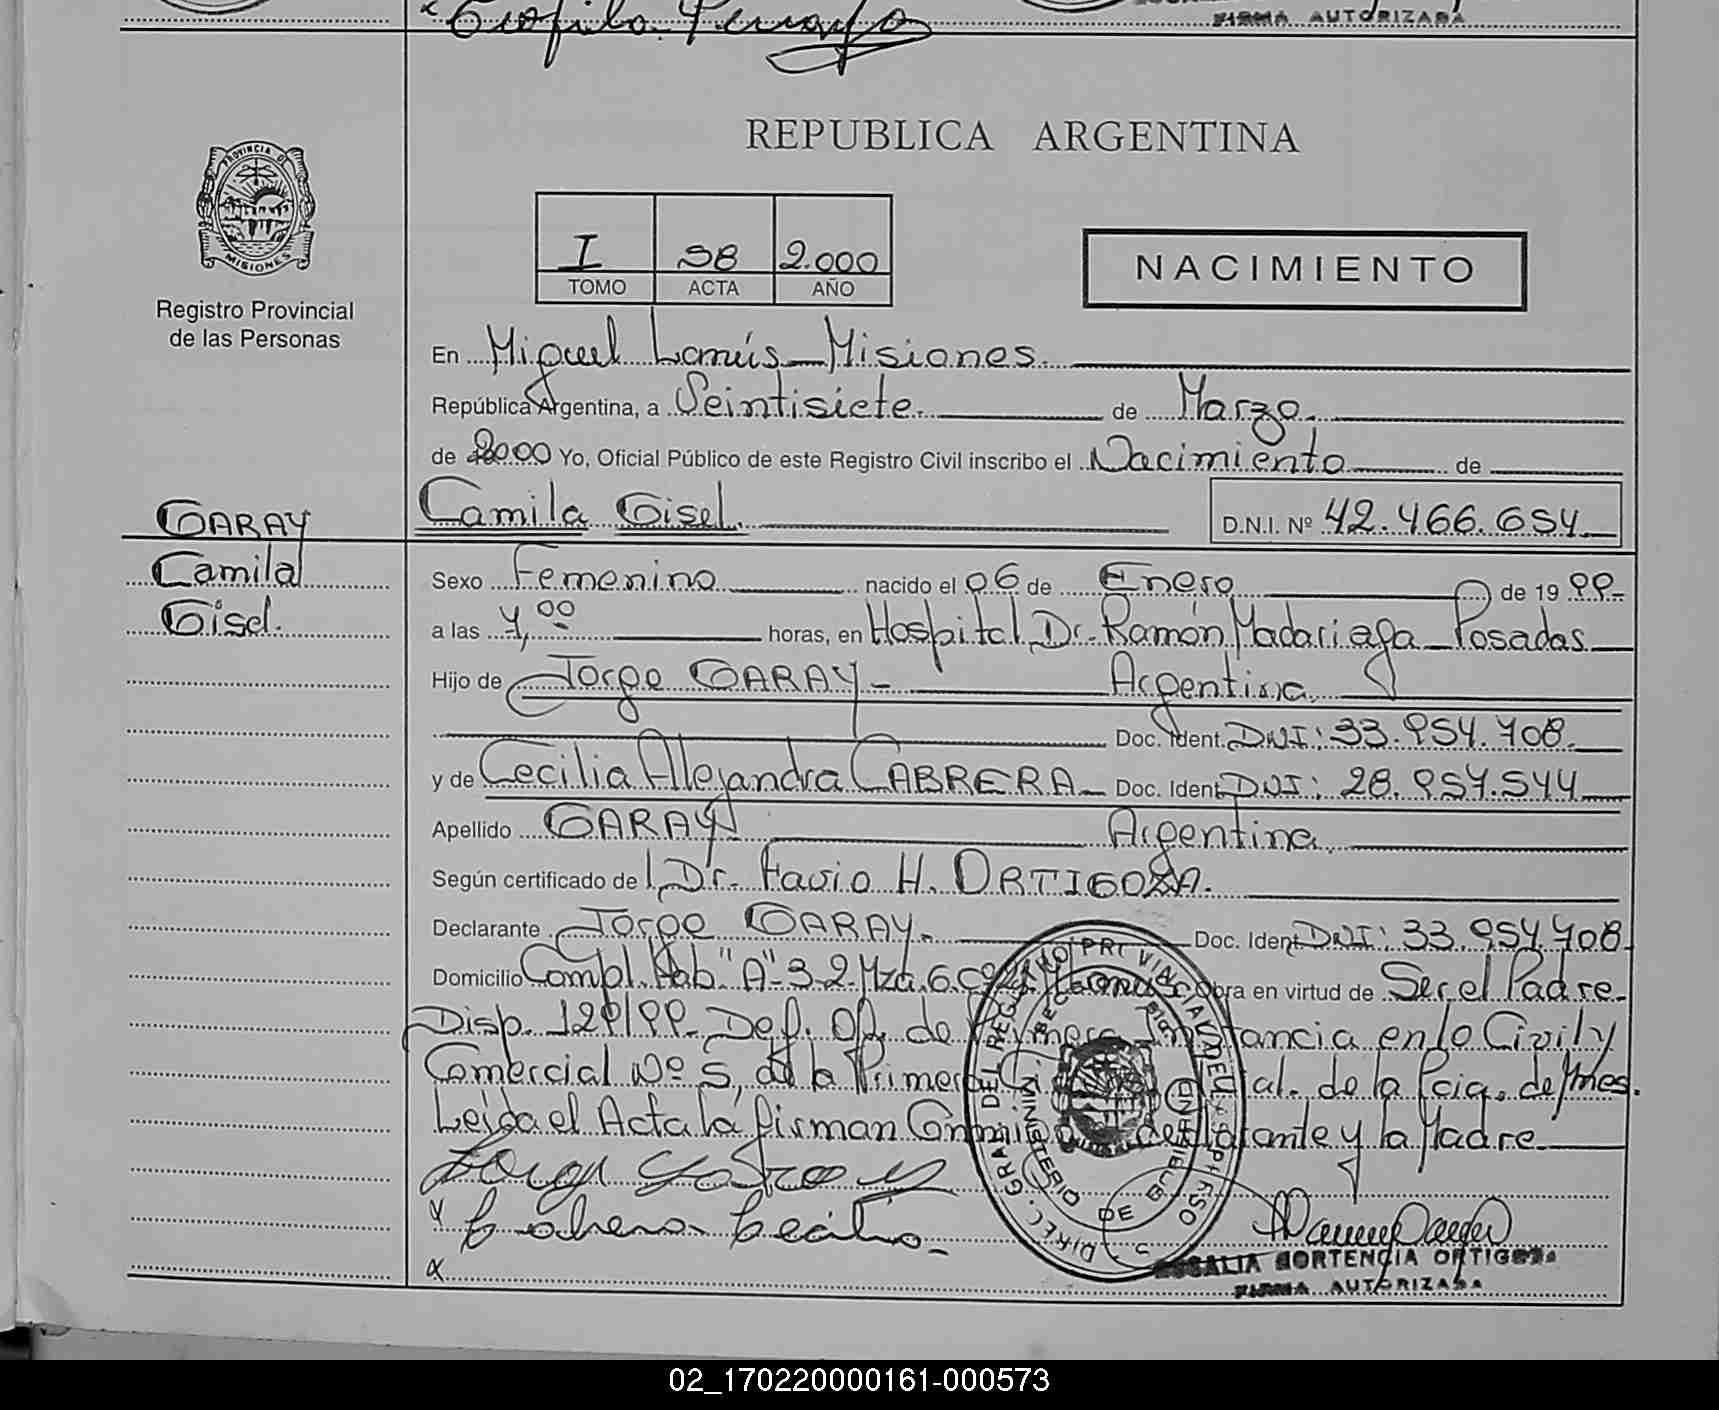 FIRMA AUTORIZADA
REPUBLICA ARGENTINA
PROVINCIA DE
MISIONES
Registro Provincial
de las Personas
I 98 2.000
TOMO ACTA AÑO
NACIMIENTO
En Miguel Lanús - Misiones.
República Argentina, a Veintisiete. de Marzo.
de 2000 Yo, Oficial Público de este Registro Civil inscribo el Nacimiento de
GARAY
Camila Gisel. D.N.I. Nº 42.466.654
Camila
Gisel.
Sexo Femenino nacido el 06 de Enero de 19 99-
a las 7,00 horas, en Hospital Dr. Ramón Madariaga - Posadas
Hijo de Jorge GARAY - Argentina.
Doc. Ident. DNI: 33.954.708.
y de Cecilia Alejandra CABRERA - Doc. Ident DNI: 28.957.544
Apellido GARAY Argentina.
Según certificado de l Dr. Favio H. ORTIGOZA.
Declarante Jorge GARAY. Doc. Ident DNI: 33.954.708
Domicilio Compl. Hab. "A" - 3-2 Mza. 6 Lanús obra en virtud de Ser el Padre.
Disp. 129/99 - Def. Of. de Primera Instancia en lo Civil y
Comercial Nº 5, de la Primera al. de la Pcia. de Mnes.
Leída el Acta la firman Conmigo declarante y la Madre
Jorge Garay
x Cabrera Cecilia
x
DIREC. GRAL DEL REGISTRO PROVINCIAL DE
MINISTERIO DE
ORTENCIA ORTIGOZA
FIRMA AUTORIZADA
02_170220000161-000573